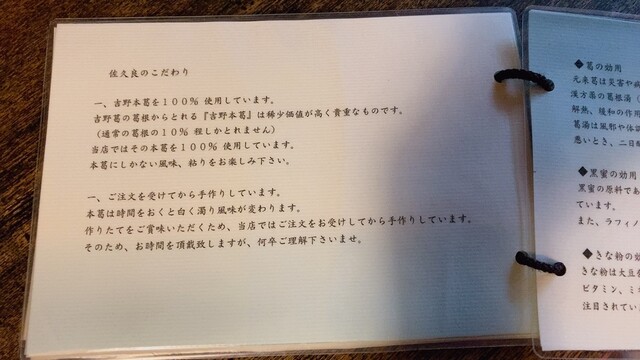 佐久良のこだわり
一、吉野本葛を100% 使用しています。
吉野葛の葛根からとれる『吉野本葛』は稀少価値が高く貴重なものです。
（通常の葛根の10% 程しかとれません）
当店ではその本葛を100% 使用しています。
本葛にしかない風味、粘りをお楽しみ下さい。
一、ご注文を受けてから手作りしています。
本葛は時間をおくと白く濁り風味が変わります。
作りたてをご賞味いただくため、当店ではご注文をお受けしてから手作りしています。
そのため、お時間を頂戴致しますが、何卒ご理解下さいませ。
◆葛の効用
元来葛は災害や病
漢方薬の葛根湯（
解熱、緩和の作用
葛湯は風邪や体調
悪いとき、二日酔
◆黒蜜の効用
黒蜜の原料であ
ています。
また、ラフィノ
◆きな粉の効
きな粉は大豆
ビタミン、ミ
注目されてい